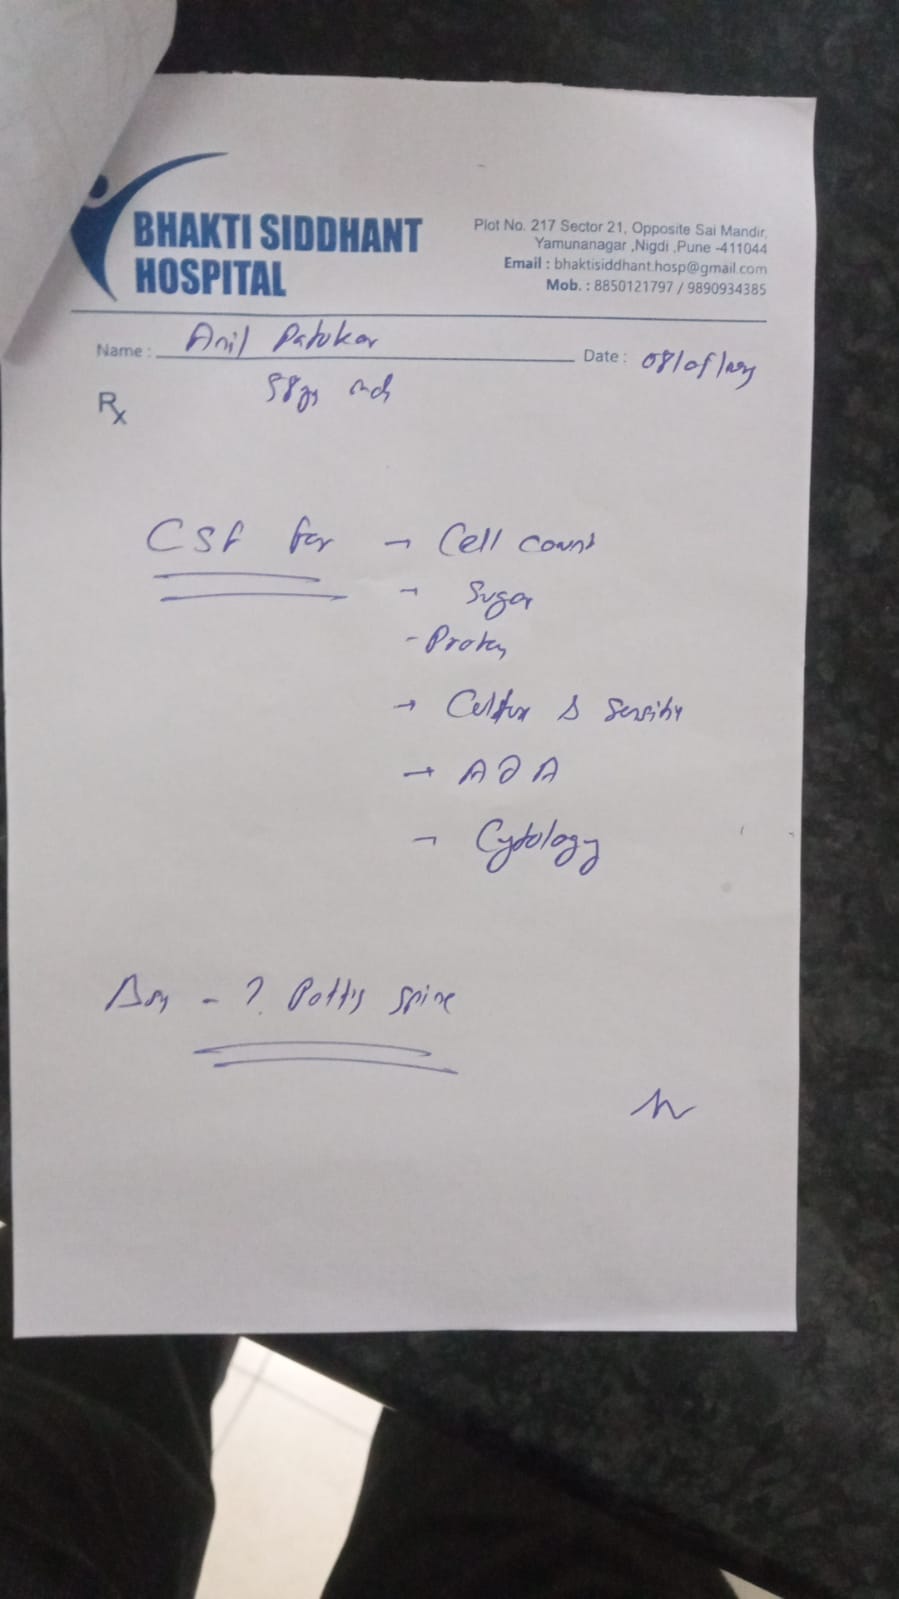 BHAKTI SIDDHANT
HOSPITAL
Plot No. 217 Sector 21, Opposite Sai Mandir,
Yamunanagar ,Nigdi ,Pune -411044
Email : bhaktisiddhant.hosp@gmail.com
Mob. : 8850121797 / 9890934385
Name : Anil Date :
Rx
CSF for → Cell count
→ Sugar
- Protein
→ Culture & Sensitivity
→ ADA
→ Cytology
- ? Pott's spine